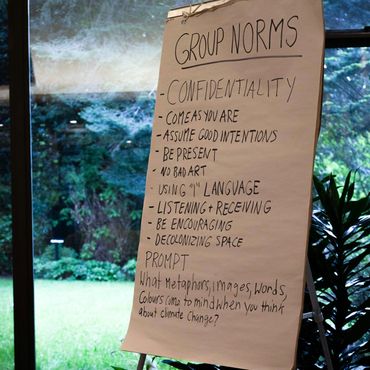 GROUP NORMS
- CONFIDENTIALITY
- COME AS YOU ARE
- ASSUME GOOD INTENTIONS
- BE PRESENT
- NO BAD ART
- USING "I" LANGUAGE
- LISTENING + RECEIVING
- BE ENCOURAGING
- DECOLONIZING SPACE
PROMPT
What metaphors, images, words,
Colours come to mind when you think
about climate Change?